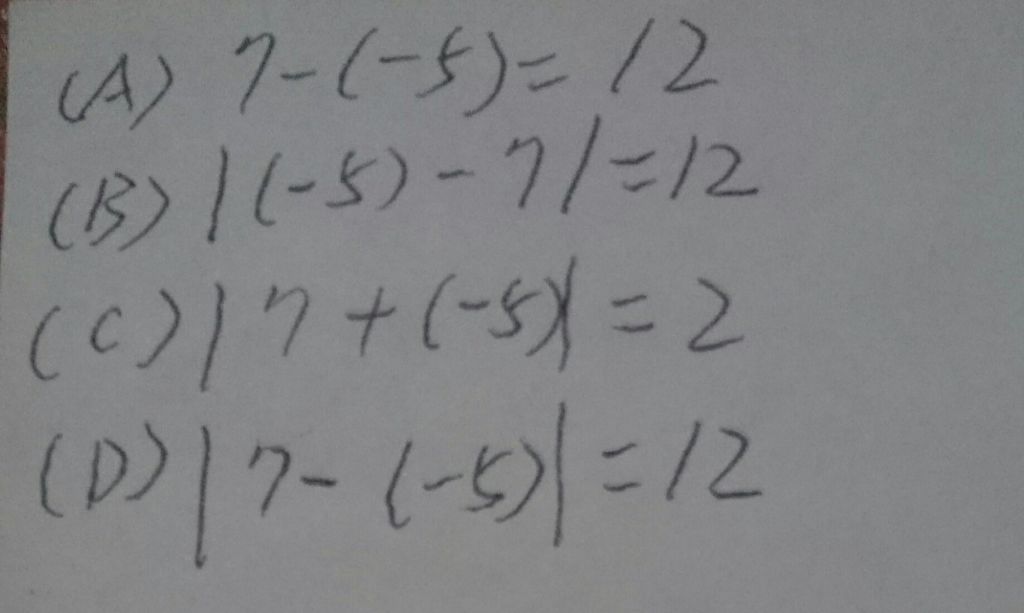 (A) 7-(-5)=12
(B) |(-5)-7|=12
(C) |7+(-5)|=2
(D) |7-(-5)|=12